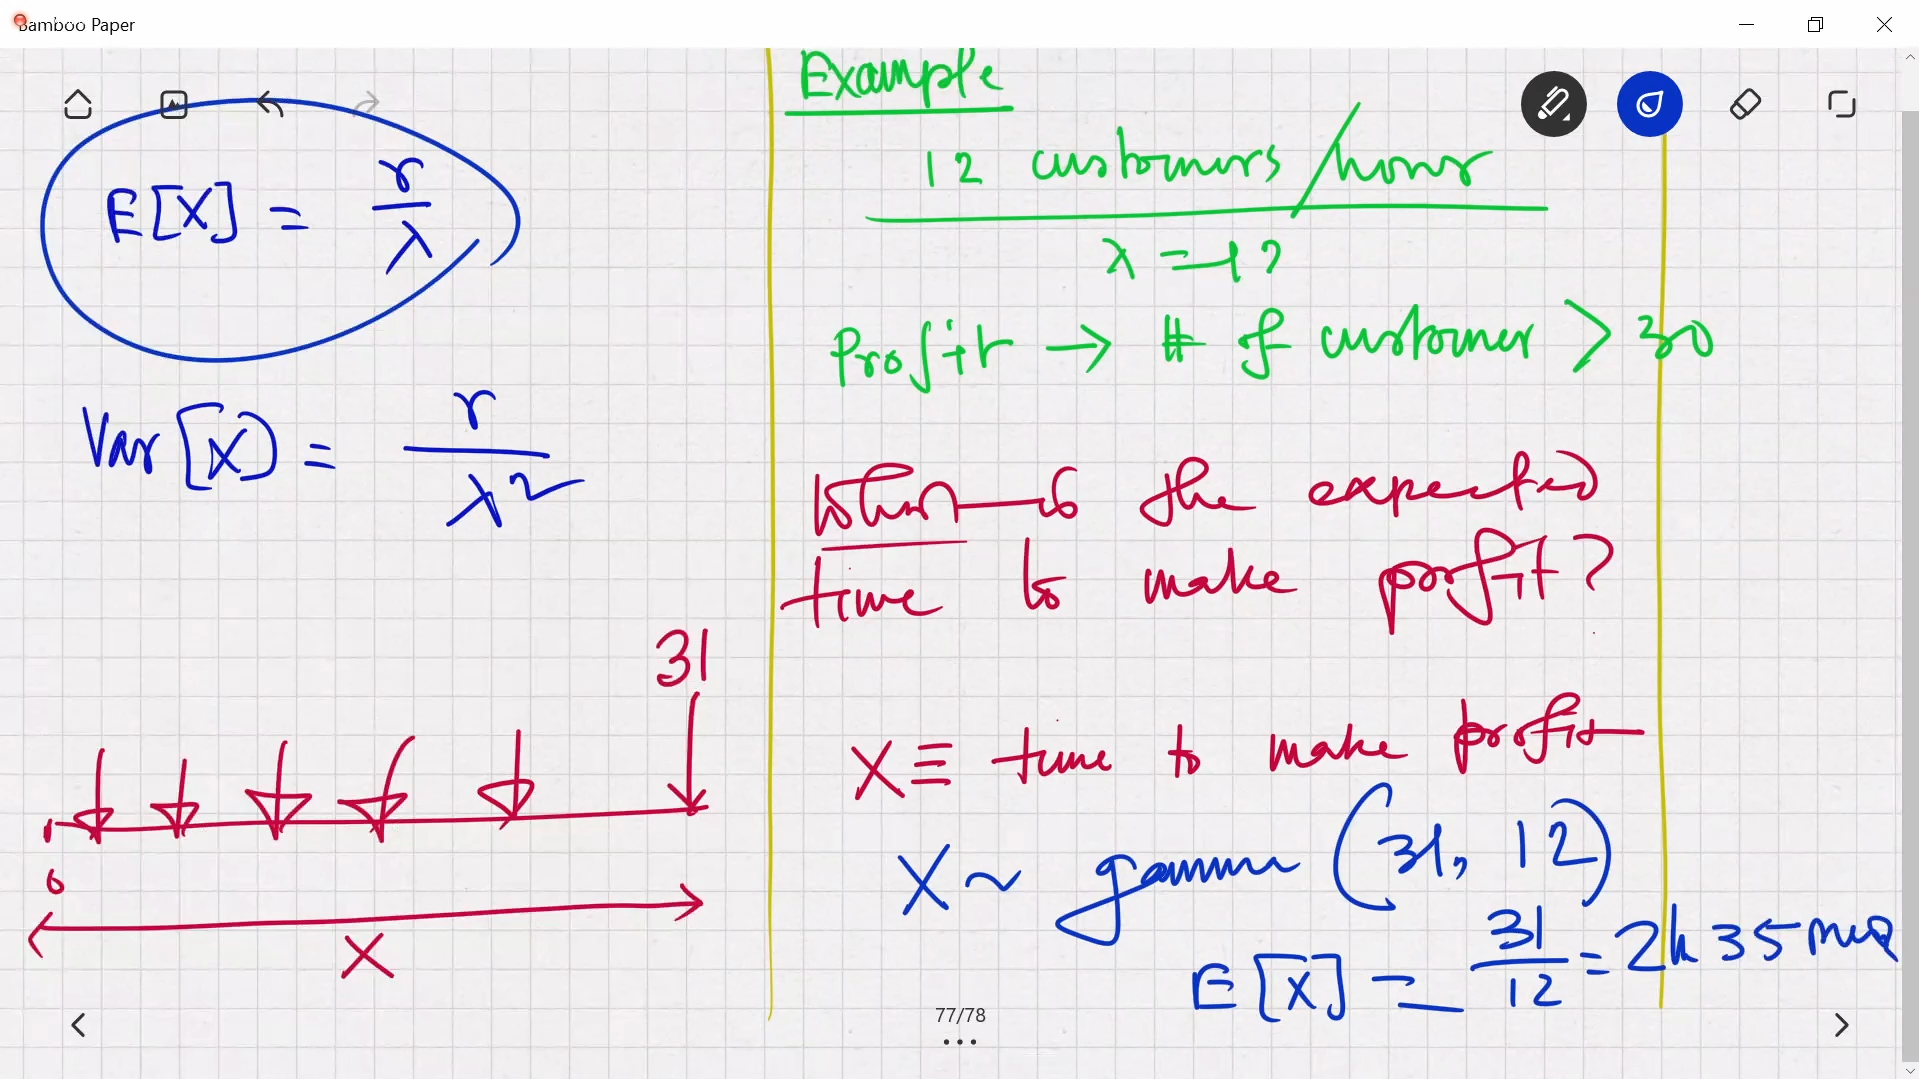 Bamboo Paper
E[X] = r/λ
Var[X] = r/λ²
31
0
X
Example
12 customers/hour
λ = 12
Profit → # of customer > 30
What is the expected
time to make profit?
X ≡ time to make profit
X ~ gamma (31, 12)
E[X] = 31/12 = 2h 35 min
77/78